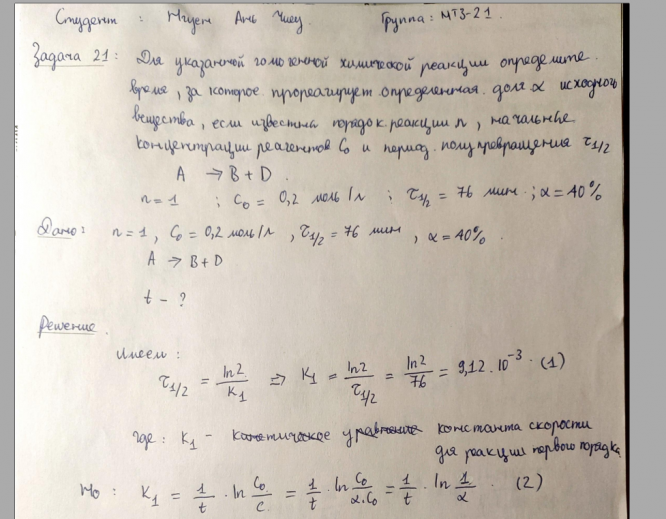 Студент : Нгуен Ань Чиеу Группа: МТЗ-21.
Задача 21: Для указанной гомогенной химической реакции определите
время, за которое прореагирует определенная доля α исходного
вещества, если известны порядок реакции n, начальные
концентрации реагентов C₀ и период полупревращения τ1/2
A → B + D.
n = 1 ; C₀ = 0,2 моль/л ; τ1/2 = 76 мин ; α = 40%
Дано: n = 1, C₀ = 0,2 моль/л, τ1/2 = 76 мин, α = 40%.
A → B + D
t - ?
Решение
Имеем :
τ1/2 = ln2/K₁ => K₁ = ln2/τ1/2 = ln2/76 = 9,12.10⁻³. (1)
где: K₁ - константа скорости
для реакции первого порядка
Но : K₁ = 1/t · ln C₀/C = 1/t · ln C₀/α.C₀ = 1/t · ln 1/α. (2)